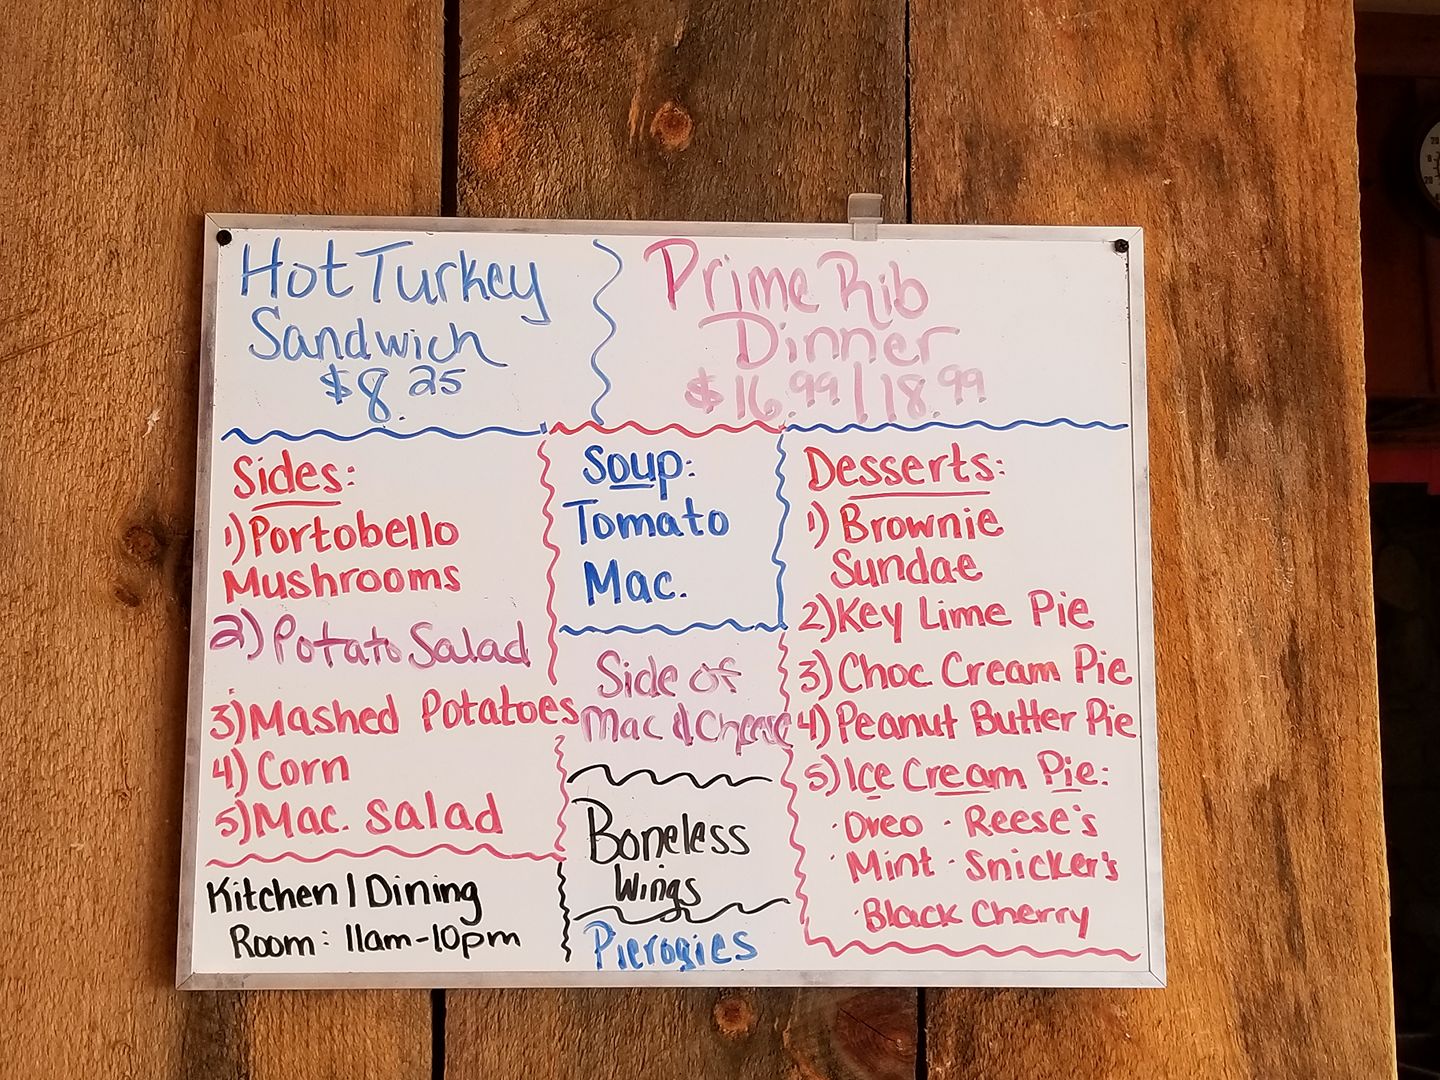 Hot Turkey
Sandwich
$8.25
Prime Rib
Dinner
$16.99 | 18.99
Sides:
1) Portobello
Mushrooms
2) Potato Salad
3) Mashed Potatoes
4) Corn
5) Mac. Salad
Kitchen | Dining
Room: 11am-10pm
Soup:
Tomato
Mac.
Side of
Mac & Cheese
Boneless
Wings
Pierogies
Desserts:
1) Brownie
Sundae
2) Key Lime Pie
3) Choc Cream Pie
4) Peanut Butter Pie
5) Ice Cream Pie:
· Oreo · Reese's
· Mint · Snicker's
· Black Cherry